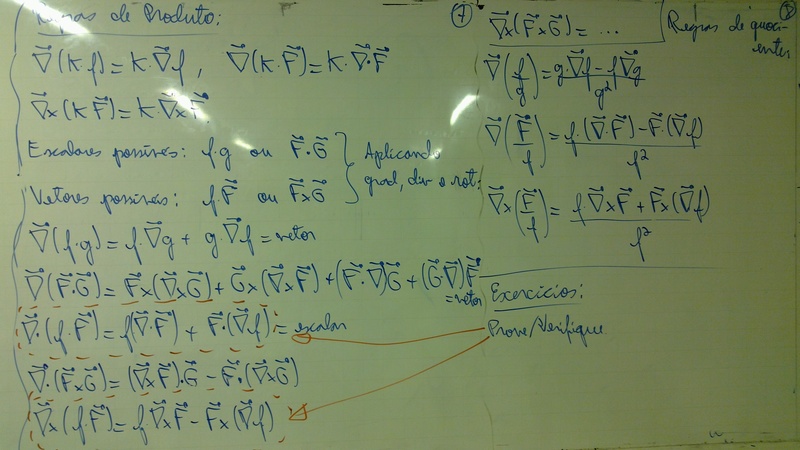 Regras de Produto:
∇⃗(k·f)=k·∇⃗f, ∇⃗(k·F⃗)=k·∇⃗·F⃗
∇⃗×(kF⃗)=k·∇⃗×F⃗
Escalares possíveis: f·g ou F⃗·G⃗
Vetores possíveis: f·F⃗ ou F⃗×G⃗
Aplicando
grad, div e rot:
∇⃗(f·g)=f·∇⃗g + g·∇⃗f = vetor
∇⃗(F⃗·G⃗)=F⃗×(∇⃗×G⃗)+G⃗×(∇⃗×F⃗)+(F⃗·∇⃗)G⃗+(G⃗·∇⃗)F⃗
=vetor
∇⃗·(f·F⃗)=f(∇⃗·F⃗) + F⃗·(∇⃗f)= escalar
∇⃗·(F⃗×G⃗)=(∇⃗×F⃗)·G⃗ - F⃗·(∇⃗×G⃗)
∇⃗×(f·F⃗)=f·∇⃗×F⃗ - F⃗×(∇⃗f)
7
∇⃗×(F⃗×G⃗)= ...
8
Regras de quoci-
entes
∇⃗(f/g)=(g·∇⃗f - f∇⃗g)/g²
∇⃗(F⃗/f)=(f·(∇⃗·F⃗) - F⃗·(∇⃗f))/f²
∇⃗×(F⃗/f)=(f∇⃗×F⃗ + F⃗×(∇⃗f))/f²
Exercícios:
Prove/Verifique